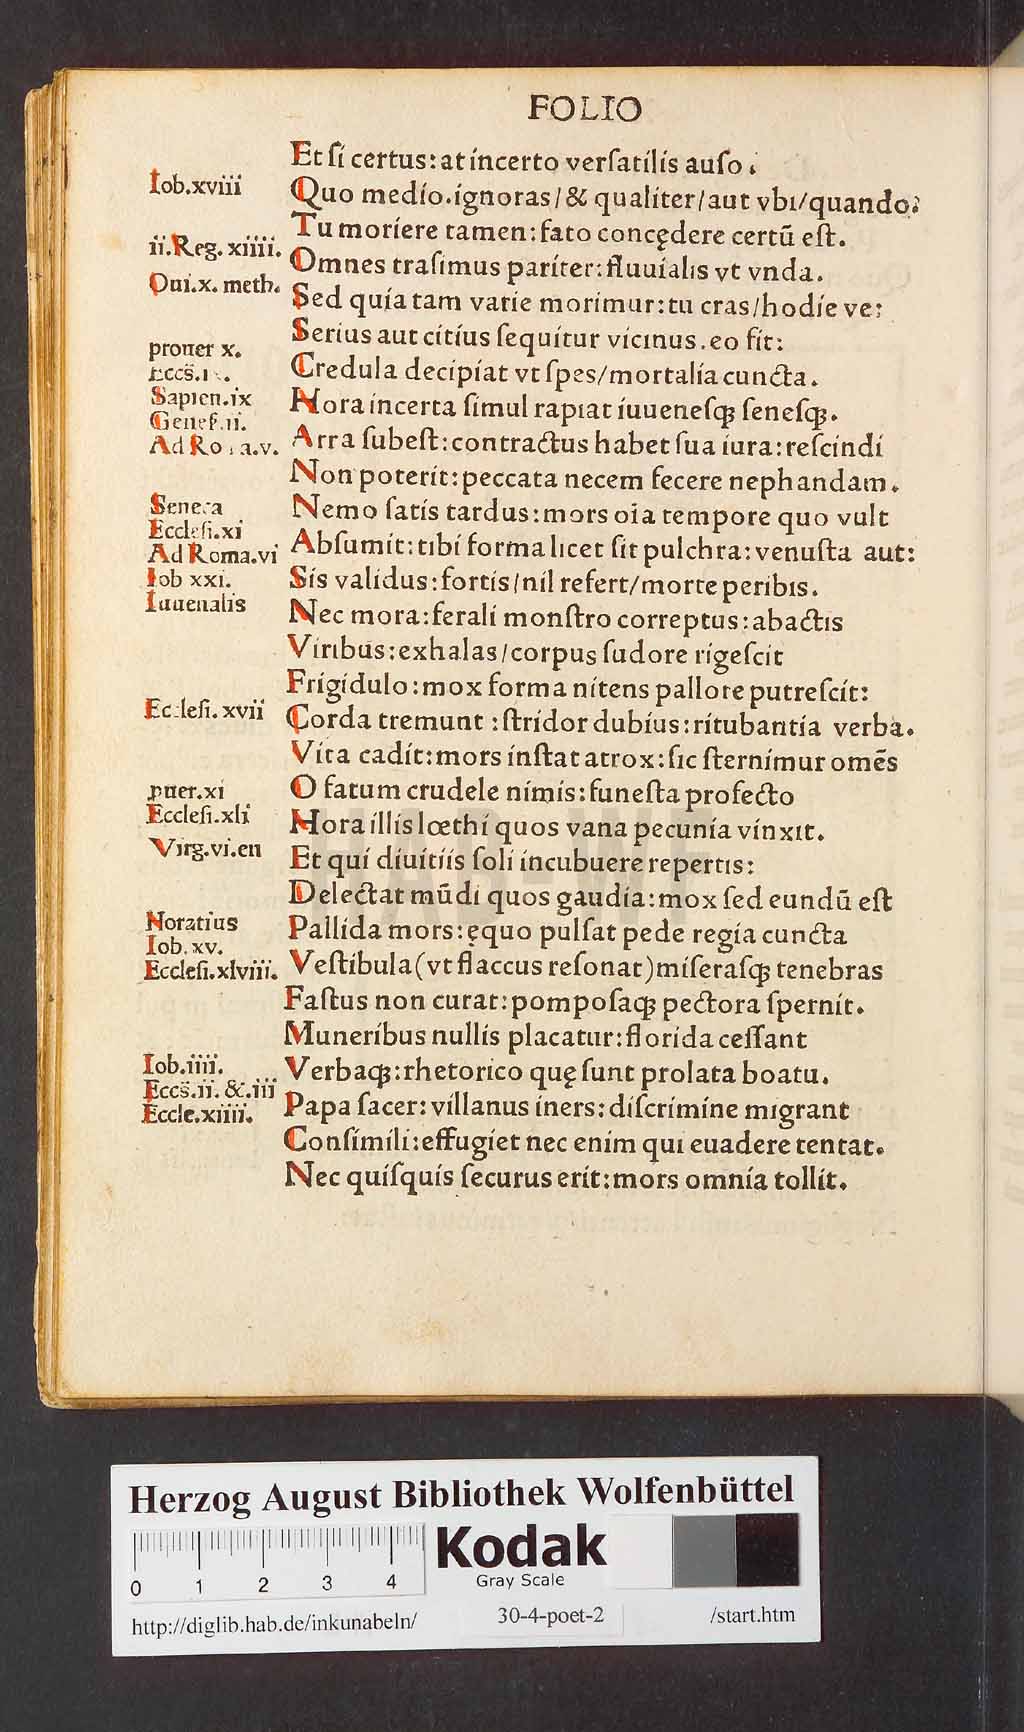 FOLIO
Et ſi certus: at incerto verſatilis auſo.
Iob.xviii
Quo medio.ignoras/& qualiter/aut vbi/quando?
Tu moriere tamen: fato concędere certū eſt.
ii.Reg. xiiii.
Omnes traſimus pariter: fluuialis vt vnda.
Oui.x. meth.
Sed quia tam varie morimur: tu cras/hodie ve:
Serius aut citius ſequitur vicinus. eo fit:
prouer x.
Credula decipiat vt ſpes/mortalia cuncta.
Eccs̄.
Sapien.ix
Hora incerta ſimul rapiat iuueneſqꝫ ſeneſqꝫ.
Geneſ.ii.
Ad Ro a.v.
Arra ſubeſt: contractus habet ſua iura: reſcindi
Non poterit: peccata necem fecere nephandam.
Seneca
Nemo ſatis tardus: mors oīa tempore quo vult
Eccleſi.xi
Ad Roma.vi
Abſumit: tibi forma licet ſit pulchra: venuſta aut:
Iob xxi.
Sis validus: fortis/nil refert/morte peribis.
Iuuenalis
Nec mora: ferali monſtro correptus: abactis
Viribus: exhalas/corpus ſudore rigeſcit
Frigidulo: mox forma nitens pallore putreſcit:
Eccleſi. xvii
Corda tremunt: ſtridor dubius: titubantia verba.
Vita cadit: mors inſtat atrox: ſic ſternimur omēs
puer.xi
O fatum crudele nimis: funeſta profecto
Eccleſi.xli
Hora illis lœthi quos vana pecunia vinxit.
Virg.vi.en
Et qui diuitiis ſoli incubuere repertis:
Delectat mūdi quos gaudia: mox ſed eundū eſt
Noratius
Pallida mors: ęquo pulſat pede regia cuncta
Iob. xv.
Eccleſi.xlviii.
Veſtibula (vt flaccus reſonat) miſeraſqꝫ tenebras
Faſtus non curat: pompoſaqꝫ pectora ſpernit.
Muneribus nullis placatur: florida ceſſant
Iob.iiii.
Verbaqꝫ: rhetorico quę ſunt prolata boatu.
Eccs̄.ii. &.iii
Eccle.xiiii.
Papa ſacer: villanus iners: diſcrimine migrant
Conſimili: effugiet nec enim qui euadere tentat.
Nec quiſquis ſecurus erit: mors omnia tollit.
HAB-WF
Herzog August Bibliothek Wolfenbüttel
0 1 2 3 4
Kodak
Gray Scale
http://diglib.hab.de/inkunabeln/ 30-4-poet-2 /start.htm